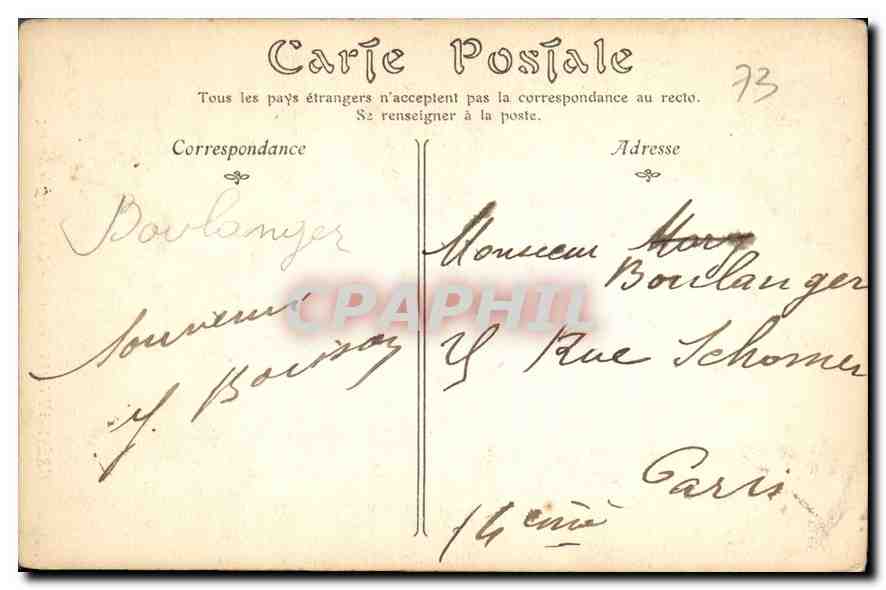 Carte Postale
73
Tous les pays étrangers n'acceptent pas la correspondance au recto.
Se renseigner à la poste.
Correspondance
Boulanger
Souvenir
Y. Bouisson
Adresse
Monsieur
Boulanger
Rue Schomer
Paris
14 eme
CPAPHIL